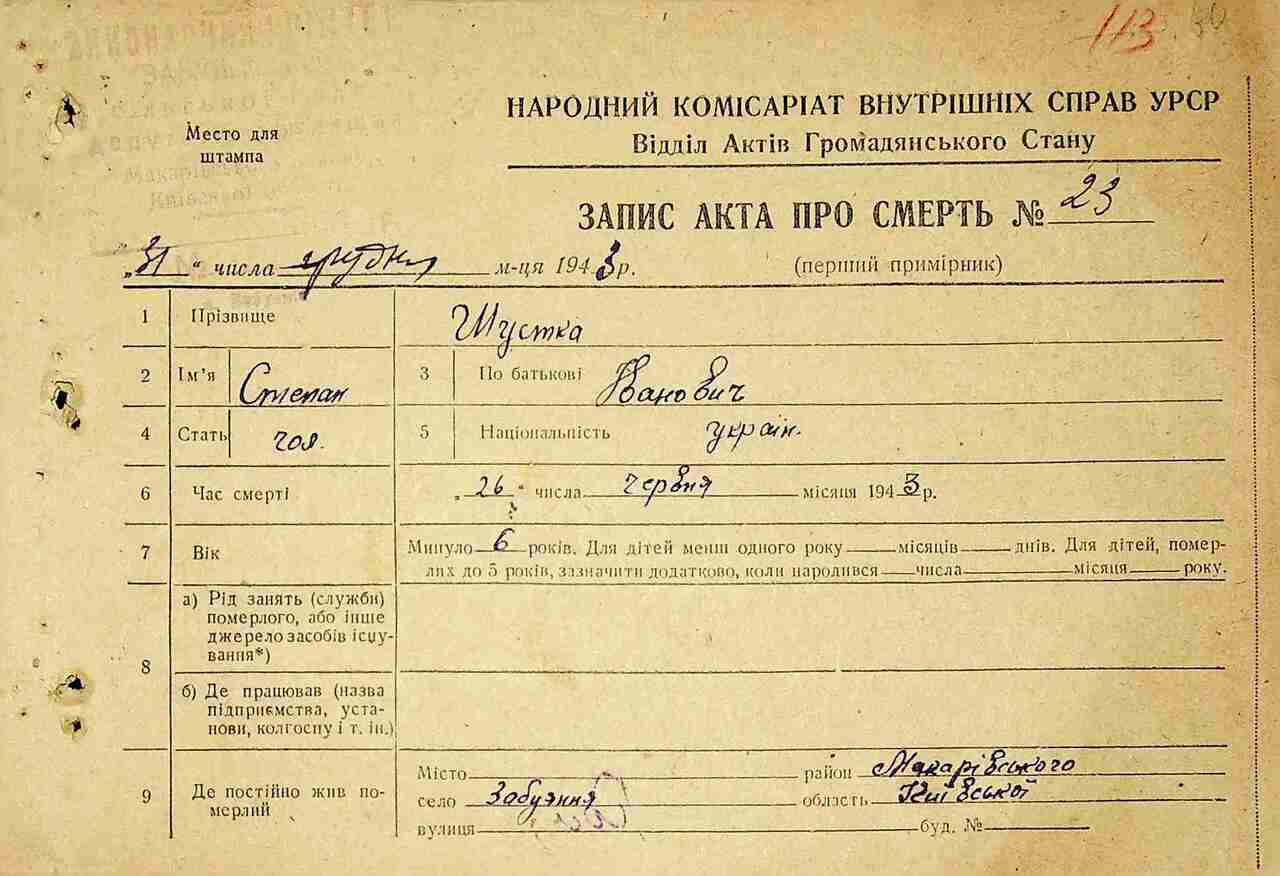 113
НАРОДНИЙ КОМІСАРІАТ ВНУТРІШНІХ СПРАВ УРСР
Відділ Актів Громадянського Стану
Место для
штампа
ЗАПИС АКТА ПРО СМЕРТЬ № 23
„31“ числа грудня м-ця 1943 р.
(перший примірник)
1 Прізвище Шустка
2 Ім'я Степан 3 По батькові Іванович
4 Стать чол. 5 Національність україн.
6 Час смерті „26“ числа червня місяця 1943 р.
7 Вік Минуло 6 років. Для дітей менш одного року місяців днів. Для дітей, помер-
лих до 5 років, зазначити додатково, коли народився числа місяця року.
8 а) Рід занять (служби)
померлого, або інше
джерело засобів існу-
вання*)
б) Де працював (назва
підприємства, уста-
нови, колгоспу і т. ін.)
9 Де постійно жив по-
мерлий
Місто район Макарівського
село Забуяння область Київської
вулиця буд. №